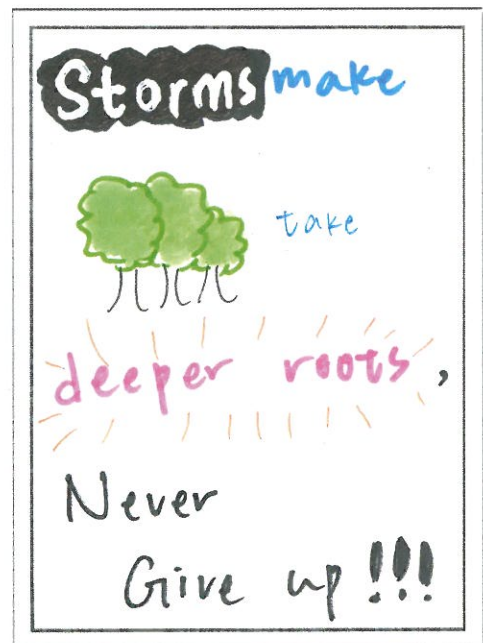 Storms make
take
deeper roots,
Never
Give up!!!